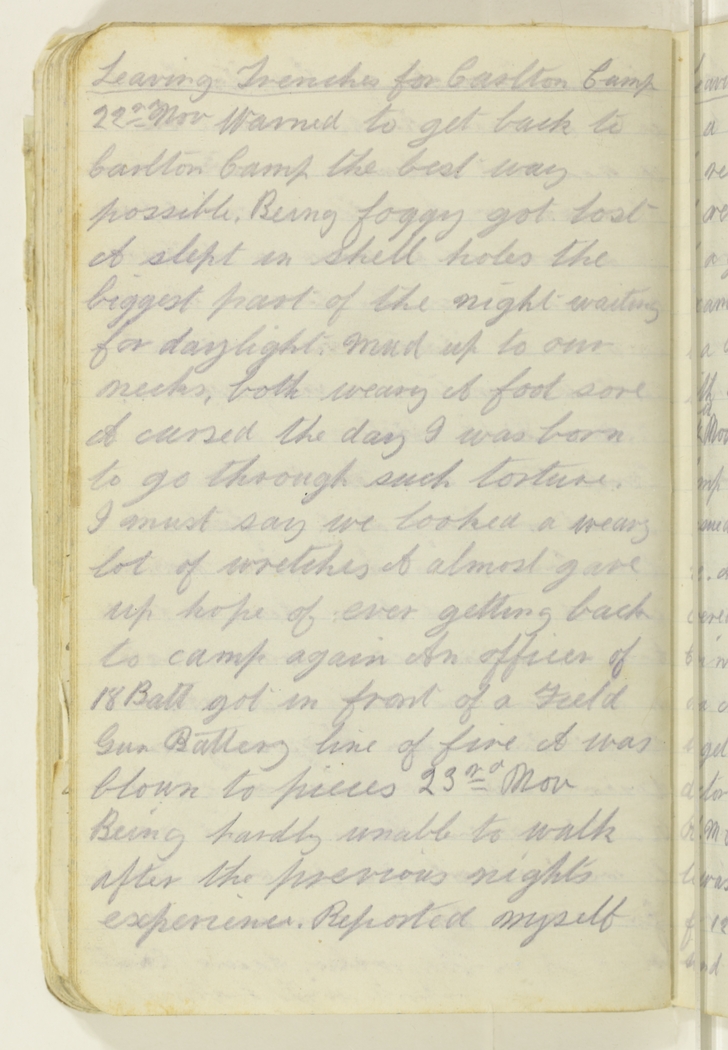 Leaving Trenches for Carlton Camp
22nd Nov Warned to get back to
Carlton Camp the best way
possible. Being foggy got lost
& slept in shell holes the
biggest part of the night waiting
for daylight. Mud up to our
necks, both weary & foot sore
& cursed the day I was born
to go through such torture.
I must say we looked a weary
lot of wretches & almost gave
up hope of ever getting back
to camp again An officer of
18 Batt got in front of a Field
Gun Battery line of fire & was
blown to pieces 23rd Nov
Being hardly unable to walk
after the previous night's
experience. Reported myself